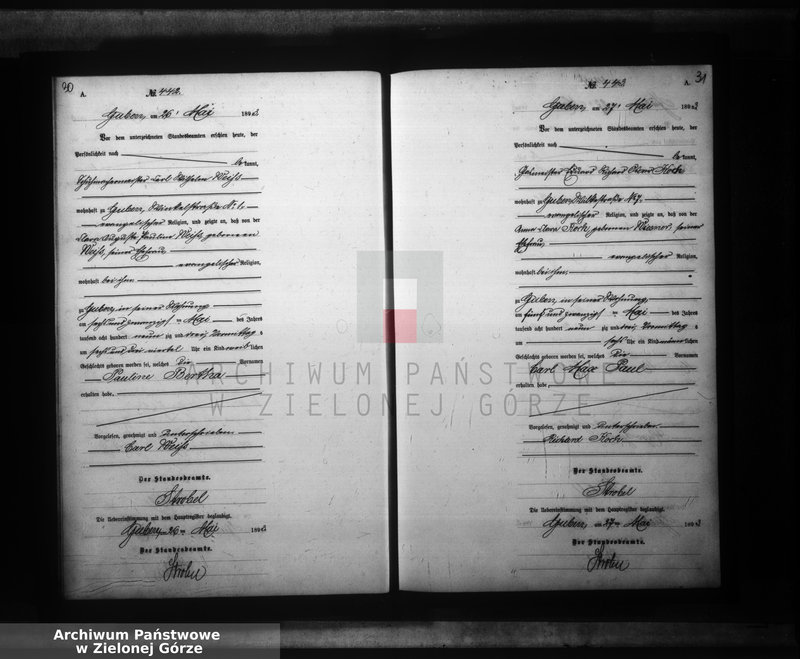 30
A.
№ 442.
Guben, am 26. Mai 1893
Vor dem unterzeichneten Standesbeamten erschien heute, der
Persönlichkeit nach
be kannt,
Schuhmachermeister Carl Wilhelm Weiß
wohnhaft zu Guben, Winkelstraße №
evangelischer Religion, und zeigte an, daß von der
Clara Auguste Pauline Weiß, geborenen
Weiß, seiner Ehefrau
evangelischer Religion,
wohnhaft bei ihm
zu Guben, in seiner Wohnung
am sechs und zwanzigsten Mai des Jahres
tausend acht hundert neun zig und drei Vormittags
um sechs und drei viertel Uhr ein Kind weiblichen
Geschlechts geboren worden sei, welches die Vornamen
Pauline Bertha
erhalten habe.
Vorgelesen, genehmigt und unterschrieben
Carl Weiß
Der Standesbeamte.
Strobel
Die Uebereinstimmung mit dem Hauptregister beglaubigt.
Guben, am 26. Mai 1893
Der Standesbeamte.
Strobel
31
A.
№ 443
Guben, am 27. Mai 1893
Vor dem unterzeichneten Standesbeamten erschien heute, der
Persönlichkeit nach
be kannt,
Eduard Richard Koch
wohnhaft zu Guben,
evangelischer Religion, und zeigte an, daß von der
Anna Clara Koch, geborenen seiner
Ehefrau
evangelischer Religion,
wohnhaft bei ihm,
zu Guben, in seiner Wohnung,
am fünf und zwanzigsten Mai des Jahres
tausend acht hundert neun zig und drei Vormittags
um sechs Uhr ein Kind männlichen
Geschlechts geboren worden sei, welches die Vornamen
Carl Max Paul
erhalten habe
Vorgelesen, genehmigt und unterschrieben
Richard Koch
Der Standesbeamte.
Strobel
Die Uebereinstimmung mit dem Hauptregister beglaubigt.
Guben, am 27. Mai 1893
Der Standesbeamte.
Strobel
ARCHIWUM PAŃSTWOWE
W ZIELONEJ GÓRZE
Archiwum Państwowe
w Zielonej Górze